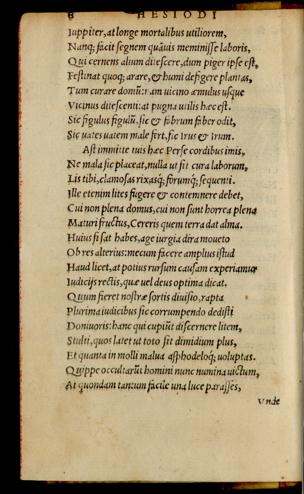 6 HESIODI
Iuppiter, at longe mortalibus utiliorem,
Nanq; facit segnem quãuis meminisse laboris,
Qui cernens alium ditescere, dum piger ipse est,
Festinat quoq; arare, & humi defigere plantas,
Tum curare domũ: nam uicino æmulus usque
Vicinus ditescenti: at pugna utilis hæc est.
Sic figulus figulũ, sic & fabrum faber odit,
Sic uates uatem male fert, sic Irus & Irum.
Ast immitte tuis hæc Perse cordibus imis,
Ne mala sic placeat, nulla ut sit cura laborum,
Lis tibi, clamosas rixasq; forumq; sequenti.
Ille etenim lites fugere & contemnere debet,
Cui non plena domus, cui non sunt horrea plena
Maturi fructus, Cereris quem terra dat alma.
Huius si sat habes, age iurgia dira moueto
Ob res alterius: mecum facere amplius istud
Haud licet, at potius rursum causam experiamur
Iudicijs rectis, quæ uel deus optima dicat.
Quum fieret nostræ sortis diuisio, rapta
Plurima iudicibus sic corrumpendo dedisti
Doniuoris: hanc qui cupiũt discernere litem,
Stulti, quos latet ut toto sit dimidium plus,
Et quanta in molli malua asphodeloq; uoluptas.
Quippe occultarũt homini nunc numina uictum,
At quondam tantum facile una luce parasses,
Vnde